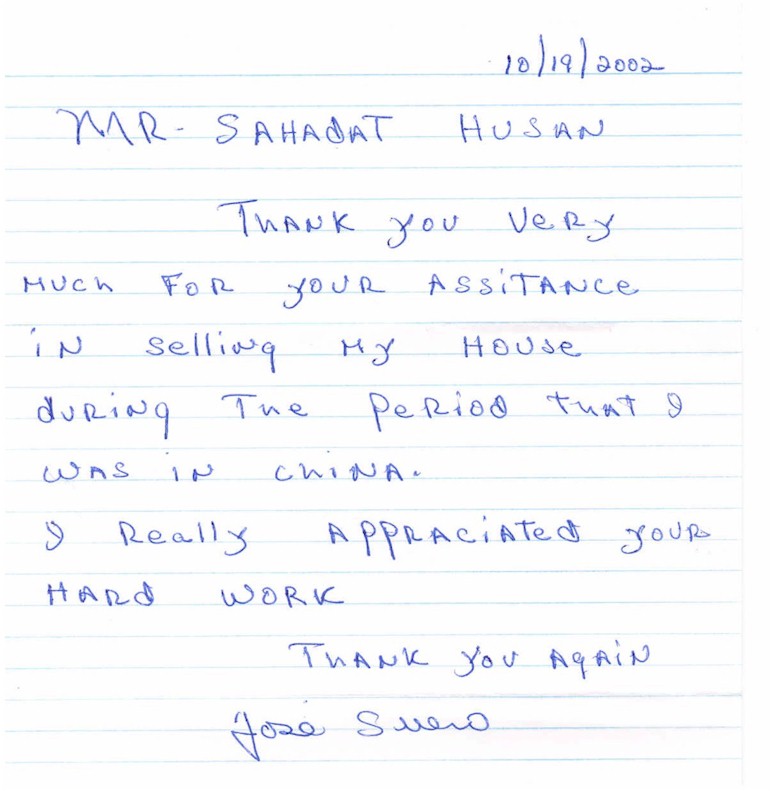 10/19/2002
MR- SAHADAT HUSAN
THANK you VeRy
MUCh FOR yOUR ASSiTANCe
iN selling My HOUSe
duRiNg The PeRiod that I
WAS iN ChiNA.
I Really APPRACiATed yOUR
HARd WORK
THANK you AgAiN
José Suero